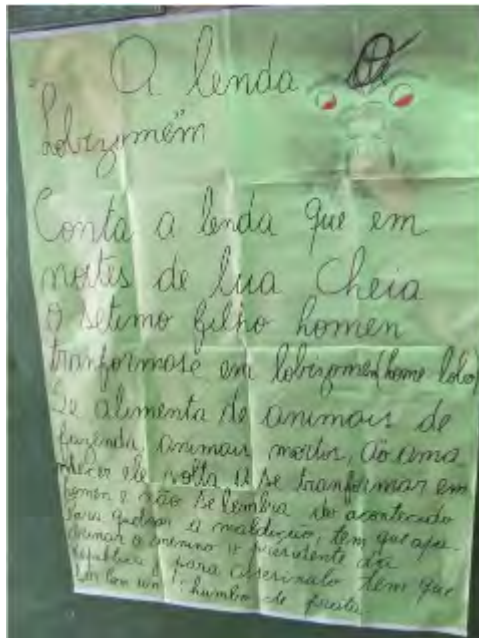 A lenda
"Lobizomem"
Conta a lenda que em
noites de lua Cheia
O setimo filho homen
tranformase em lobizomem (home lobo)
Se alimenta de animais de
fazenda, animais mortos, ão ama
nhecer ele volta a se tranformar em
homen e não se lembra do acontecido
Para quebrar a maldição, tem que apa-
drinar o menino o presidente da
Republica e para assesinalo tem que
ser com un chumbo de prata.